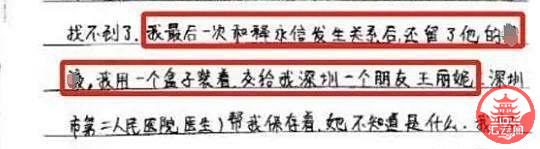 找不到了。我最后一次和释永信发生关系后,还留了他的
,我用一个盒子装着,交给我深圳一个朋友王丽娓 深圳
市第二人民医院医生)帮我保存着,她不知道是什么.我